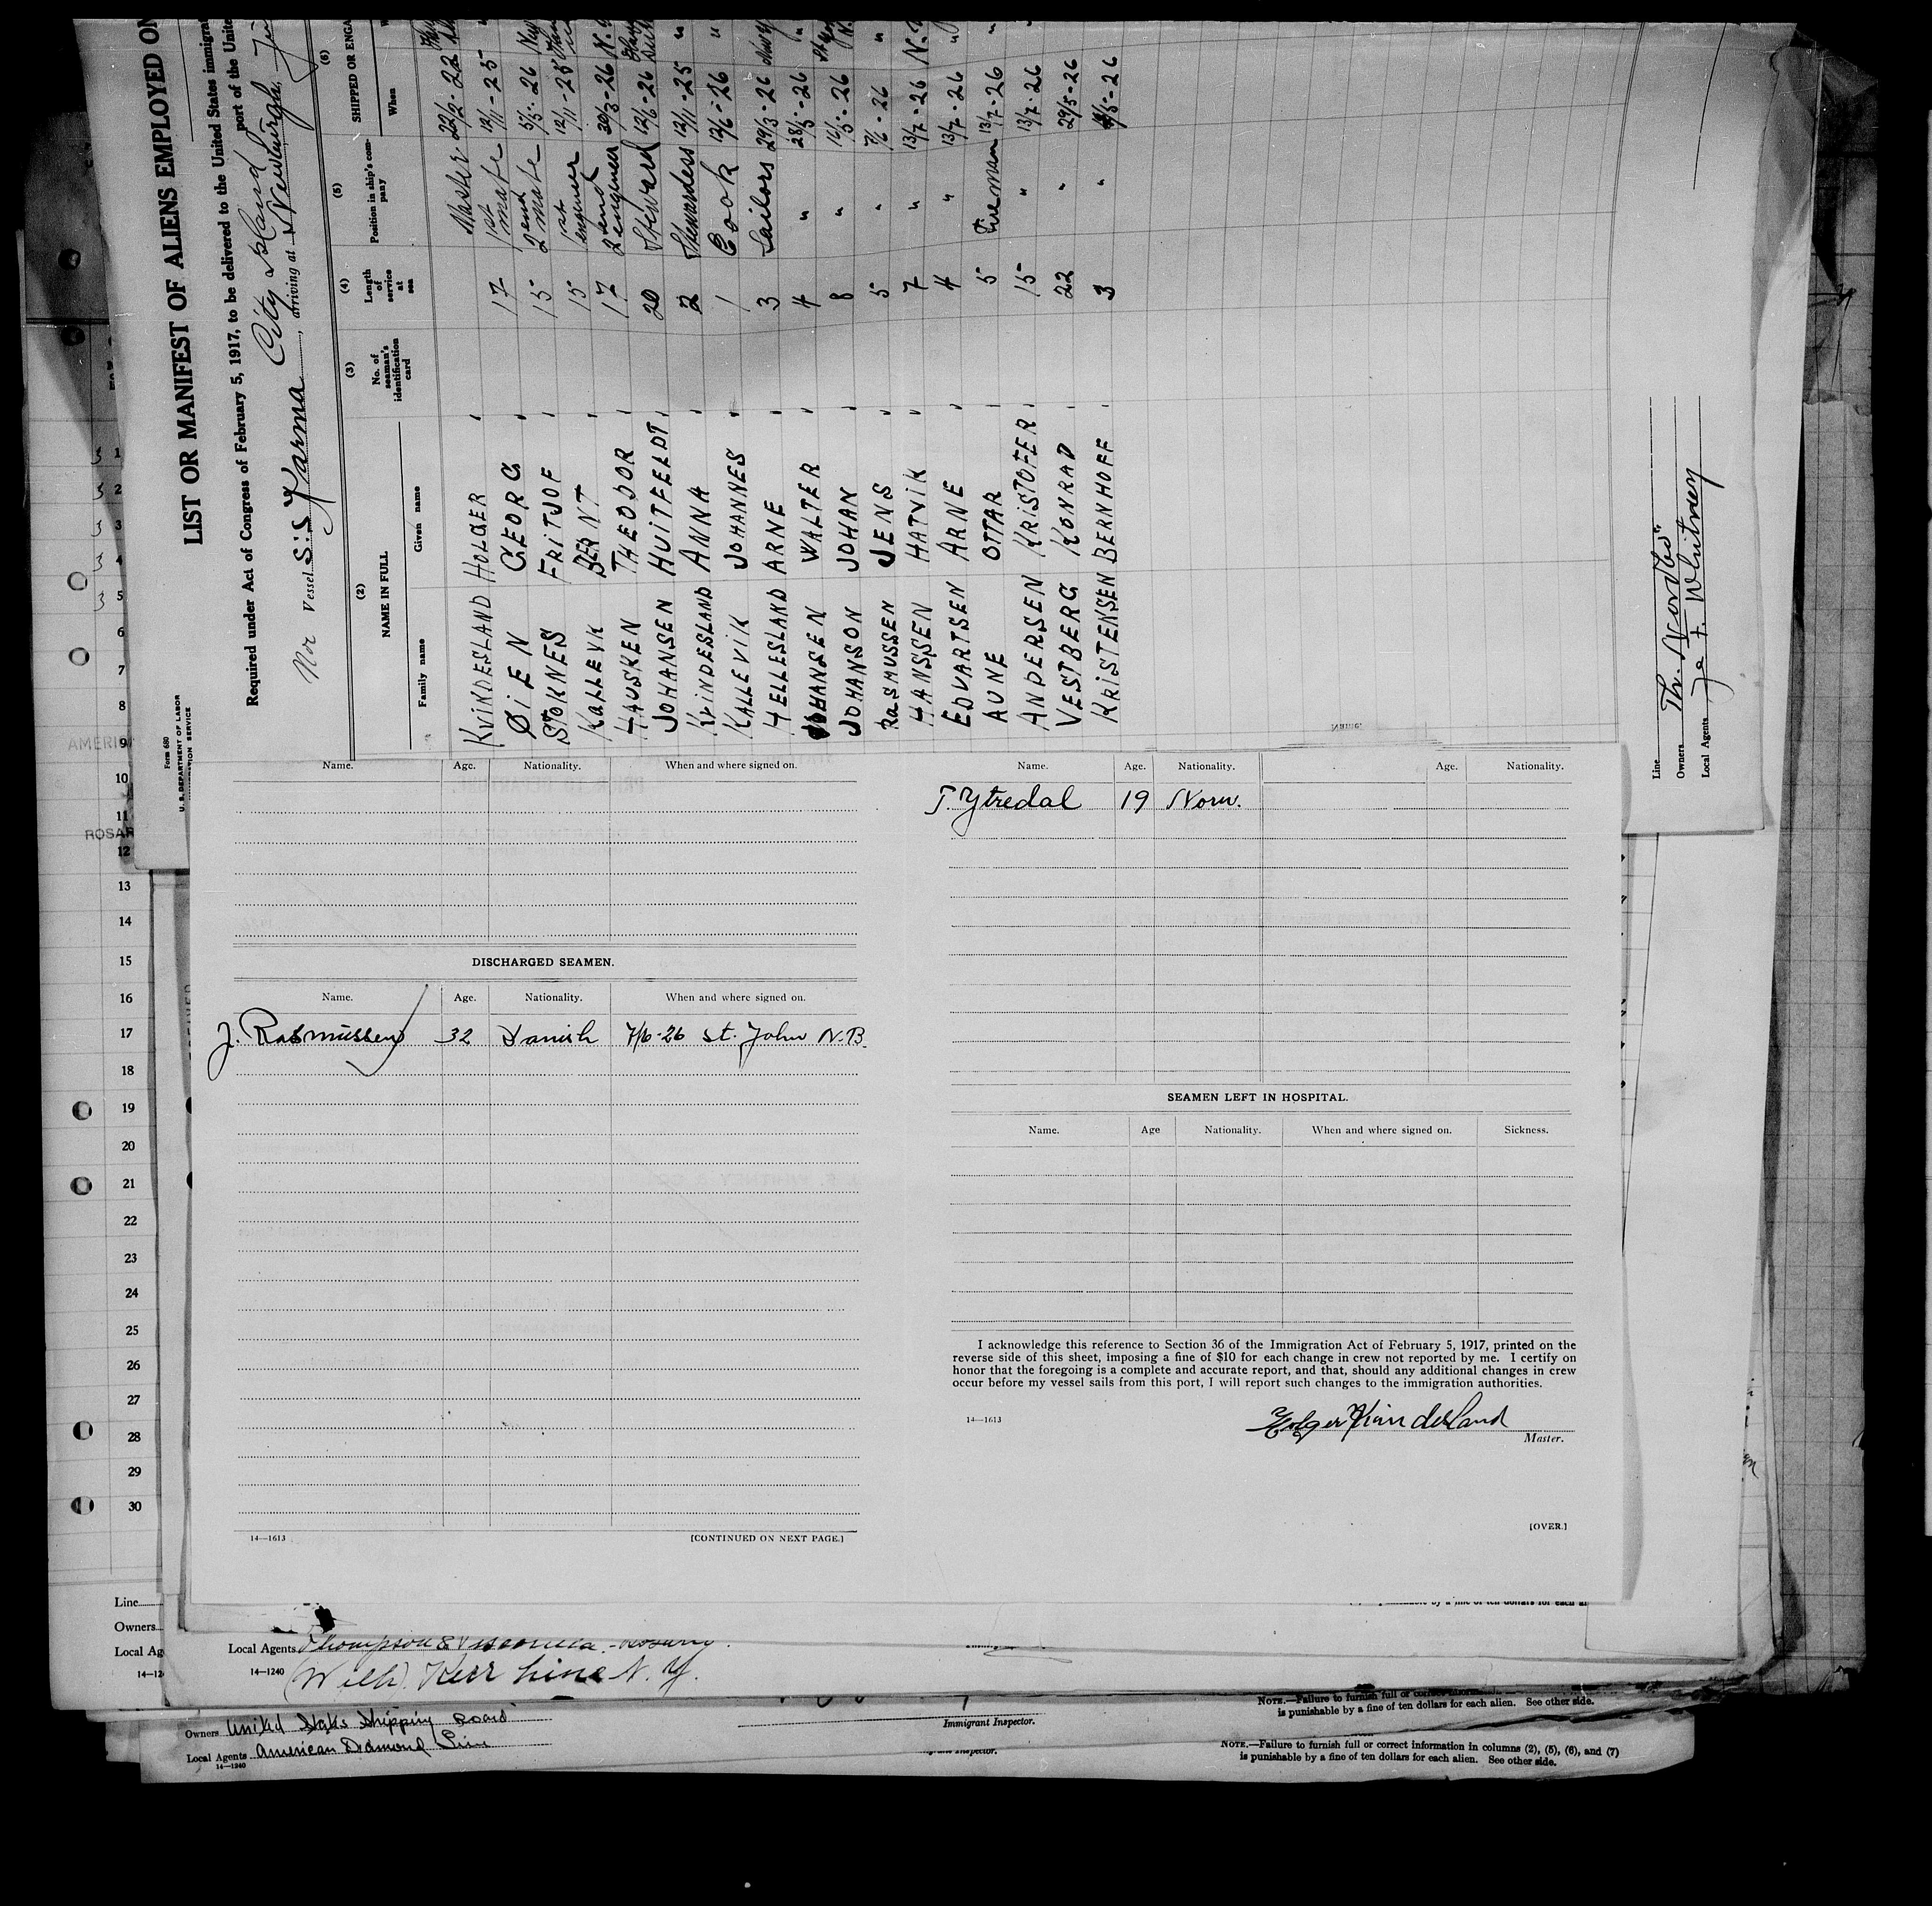 LIST OR MANIFEST OF ALIENS EMPLOYED ON
Required under Act of Congress of February 5, 1917, to be delivered to the United States immigrat
port of the Unite
City Island
Nor Vessel S.S. Karma, arriving at Newburgh,
Form 680
U. S. DEPARTMENT OF LABOR
IMMIGRATION SERVICE
(2) (3) (4) (5) (6)
NAME IN FULL
Family name Given name
No. of seaman's identification card
Length of service at sea
Position in ship's company
SHIPPED OR ENGA
When
KVINDESLAND HOLGER Master 22/2-22
ØIEN GEORG 17 1st mate 12/11-25
STOKNES FRITJOF 15 2end mate 5/5-26
KALLEVK BERNT 15 1st engineer 12/11-25
HAUSKEN THEODOR 17 2end engineer 30/3-26
JOHANSEN HUITFELDT 20 Steward 12/6-26
KVINDESLAND ANNA 2 Stewardess 12/11-25 "
KALLEVIK JOHANNES 1 Cook 12/6-26 "
HELLESLAND ARNE 3 Sailors 29/3-26
JOHANSEN WALTER 4 " 28/5-26 "
JOHANSON JOHAN 8 "
RASMUSSEN JENS 5 " 7/6-26 "
HANSSEN HATVIK 7 " 13/7-26
EDVARTSEN ARNE 4 " 13/7-26 "
AUNE OTTAR 5 Fireman 13/7-26 "
ANDERSEN KRISTOFER 15 " 13/7-26
VESTBERG KONRAD 22 " 29/5-26
KRISTENSEN BERNHOFF 3 "
Line
Owners Th. Nordbö
Local Agents J. F. Whitney
Name. Age. Nationality. When and where signed on.
DISCHARGED SEAMEN.
Name. Age. Nationality. When and where signed on.
J. Rasmussen 32 Danish 7/6-26 St. John N.B.
14—1613 [CONTINUED ON NEXT PAGE.]
Name. Age. Nationality. Age. Nationality.
T. Ytredal 19 Norw.
SEAMEN LEFT IN HOSPITAL.
Name. Age Nationality. When and where signed on. Sickness.
I acknowledge this reference to Section 36 of the Immigration Act of February 5, 1917, printed on the
reverse side of this sheet, imposing a fine of $10 for each change in crew not reported by me. I certify on
honor that the foregoing is a complete and accurate report, and that, should any additional changes in crew
occur before my vessel sails from this port, I will report such changes to the immigration authorities.
14—1613
Holger Kvindesland
Master.
[OVER.]
1
2
3
4
5
6
7
8
9
10
11
12
13
14
15
16
17
18
19
20
21
22
23
24
25
26
27
28
29
30
AMERI
ROSAR
Line
Owners
Local Ag
14—12
Local Agents Thompson &
14—1240 (Will) Kerr Line N. Y.
NOTE.—Failure to furnish full or correct
is punishable by a fine of ten dollars for each alien. See other side.
Owners United States Shipping Board
Immigrant Inspector.
Local Agents American Diamond Line
14—1240
NOTE.—Failure to furnish full or correct information in columns (2), (5), (6), and (7)
is punishable by a fine of ten dollars for each alien. See other side.